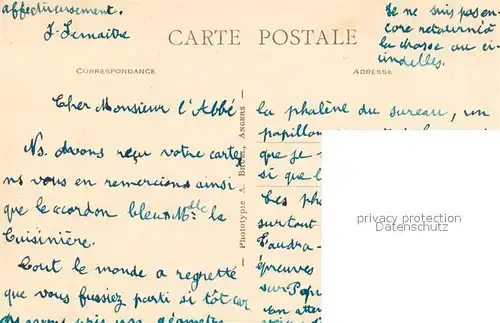 affectueusement.
J. Lemaitre
Je ne suis pas en-
core retourné à
la chasse au ci-
indelles.
CARTE POSTALE
CORRESPONDANCE
ADRESSE
Cher Monsieur l'Abbé
Ns. avons reçu votre carte,
ns vous en remercions ainsi
que le cordon bleu Mlle la
Cuisinière.
Tout le monde a regretté
que vous fussiez parti si tôt car
avons pris un géomètre
Phototypie A. Bruel, Angers
la phalène du sureau, un
papillon
que je
si que l
Les pha
surtout
Faudra-
épreuves
sur Pap
En atte
privacy protection
Datenschutz